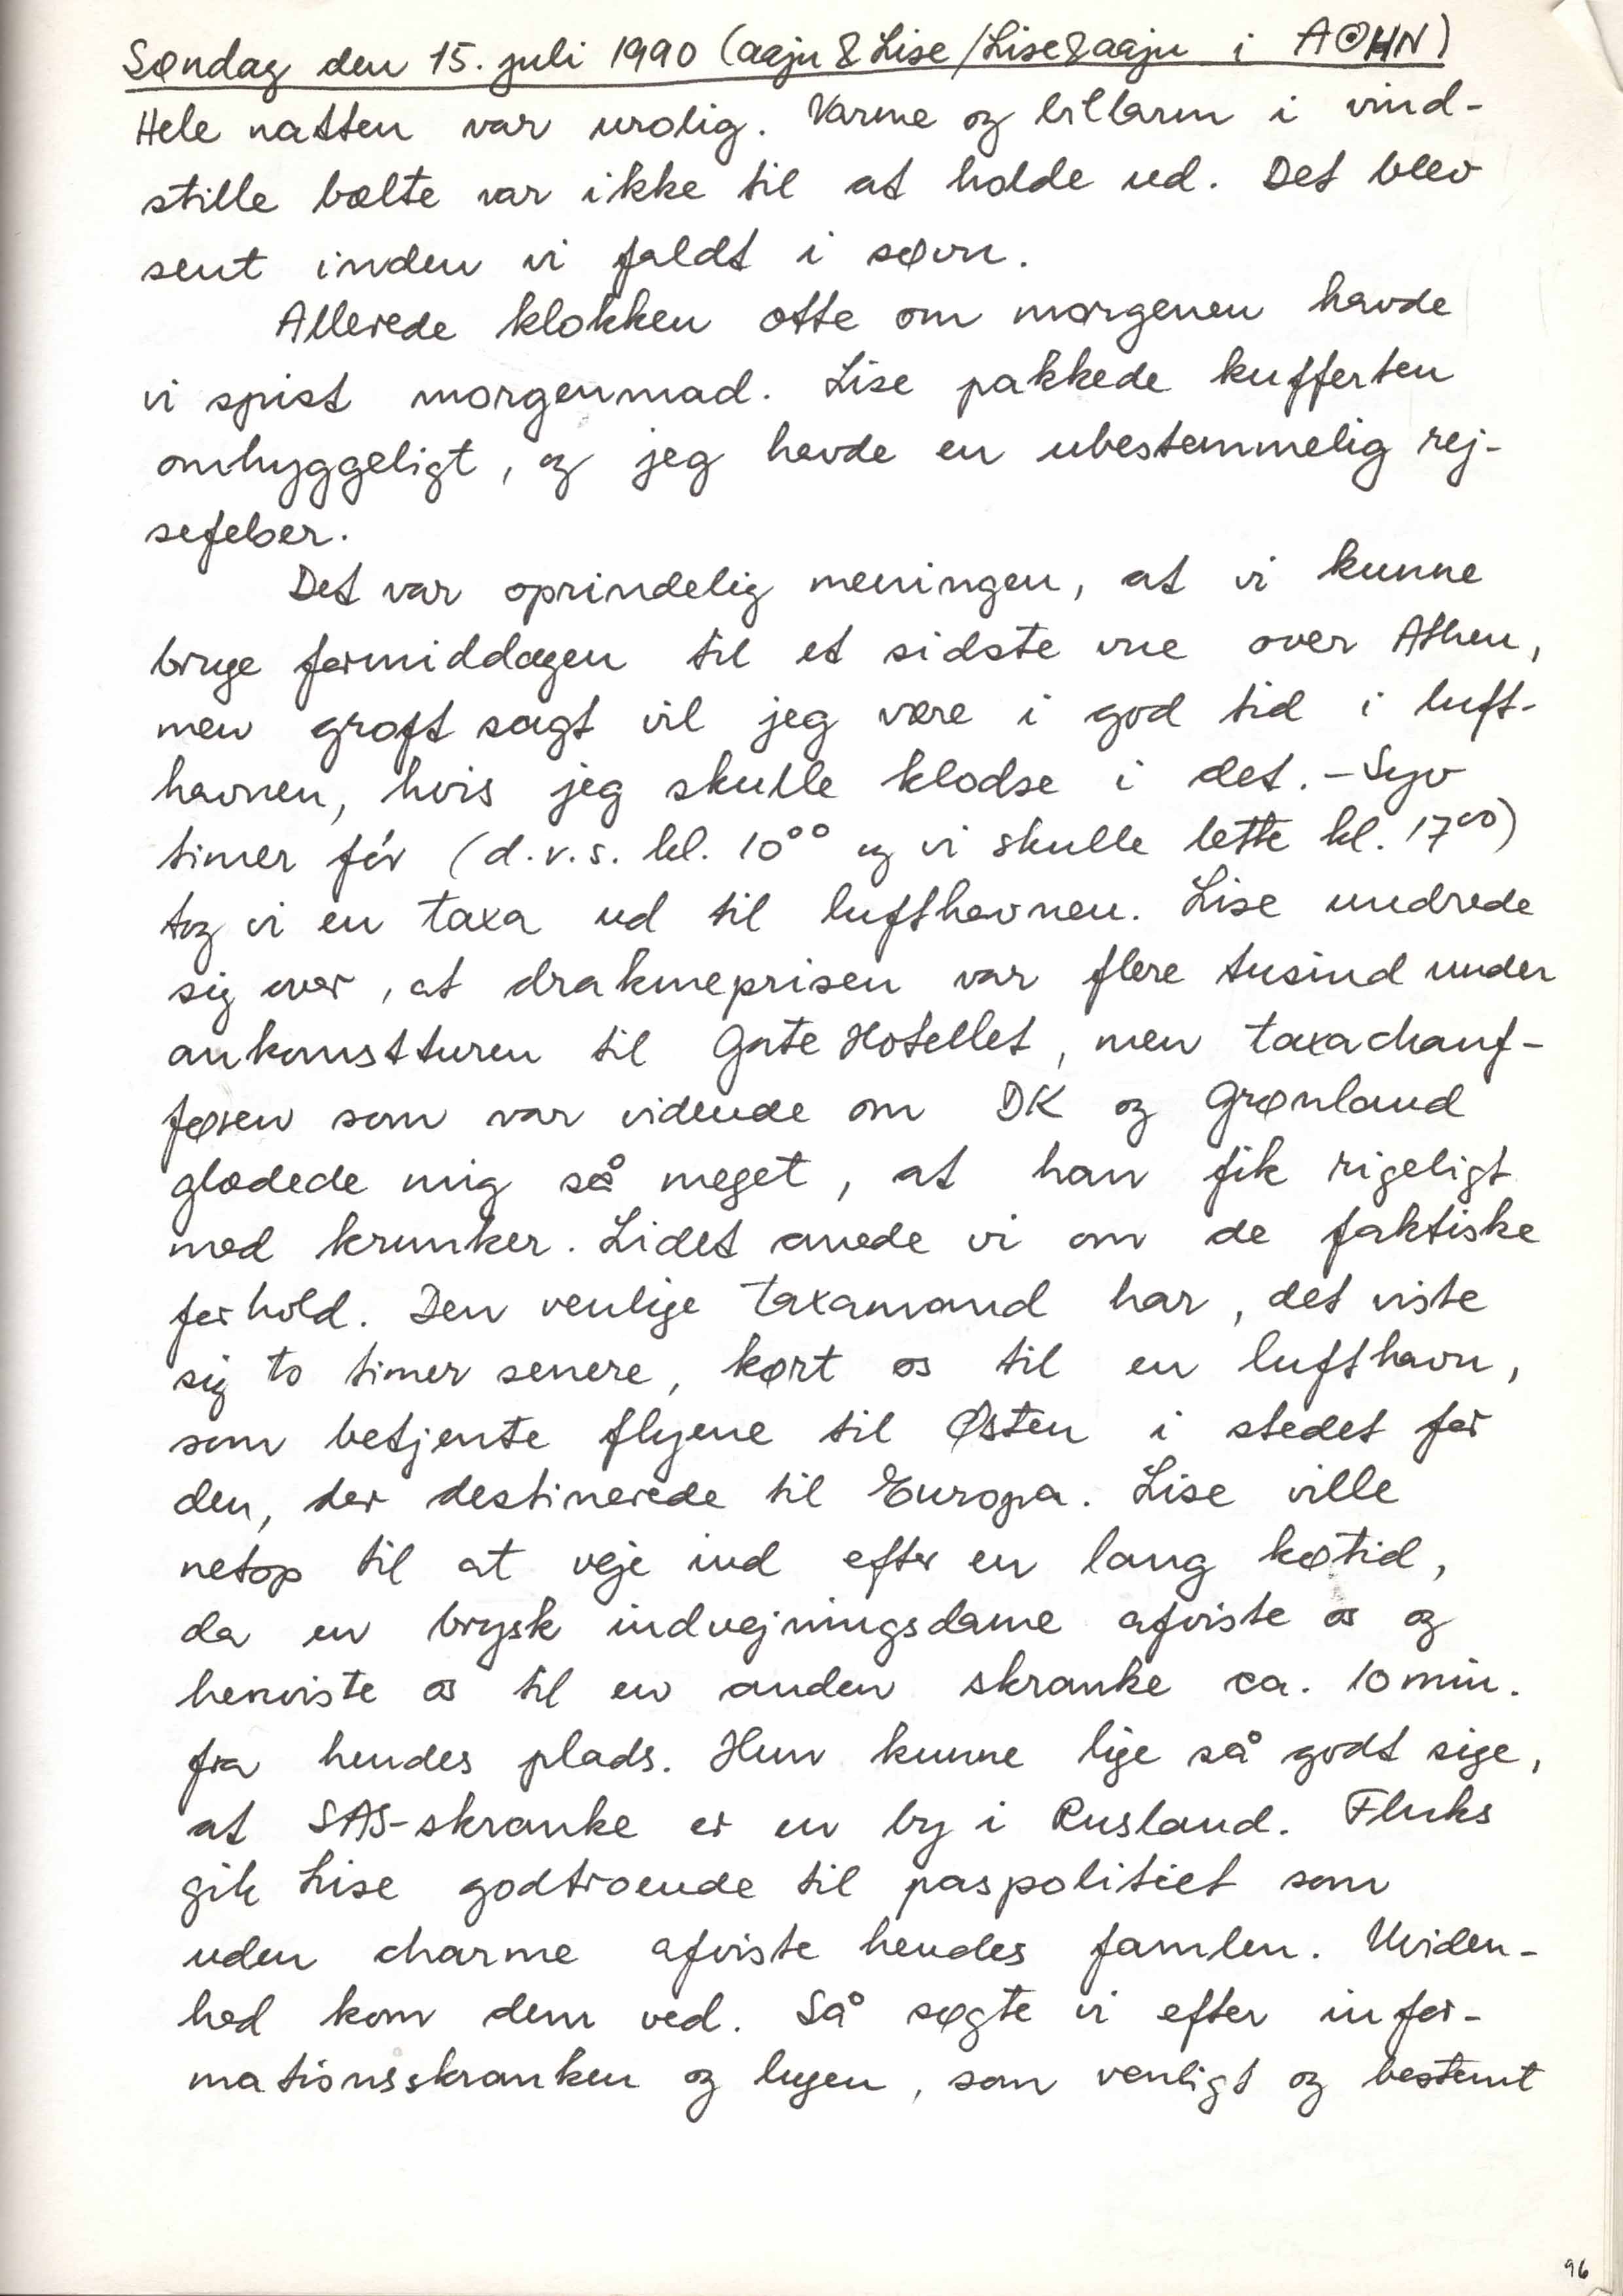 Søndag den 15. juli 1990 (aaju & Lise/Lise & aaju i AΘHN)
Hele natten var urolig. Varme og billarm i vind-
stille bælte var ikke til at holde ud. Det blev
sent inden vi faldt i søvn.
Allerede klokken otte om morgenen havde
vi spist morgenmad. Lise pakkede kufferten
omhyggeligt, og jeg havde en ubestemmelig rej-
sefeber.
Det var oprindelig meningen, at vi kunne
bruge formiddagen til et sidste vue over Athen,
men groft sagt vil jeg være i god tid i luft-
havnen, hvis jeg skulle klodse i det. - Syv
timer før (d.v.s. kl. 10°° og vi skulle lette kl. 17°°)
tog vi en taxa ud til lufthavnen. Lise undrede
sig over, at drakmeprisen var flere tusind under
ankomstturen til Gate Hotellet, men taxachauf-
føren som var vidende om DK og Grønland
glædede mig så meget, at han fik rigeligt
med krunker. Lidet anede vi om de faktiske
forhold. Den venlige taxamand har, det viste
sig to timer senere, kørt os til en lufthavn,
som betjente flyene til Østen i stedet for
den, der destinerede til Europa. Lise ville
netop til at veje ind efter en lang køtid,
da en brysk indvejningsdame afviste os og
henviste os til en anden skranke ca. 10 min.
fra hendes plads. Hun kunne lige så godt sige,
at SAS-skranke er en by i Rusland. Fluks
gik Lise godtroende til paspolitiet som
uden charme afviste hendes famlen. Uviden-
hed kom dem ved. Så søgte vi efter infor-
mationsskranken og lugen, som venligt og bestemt
96